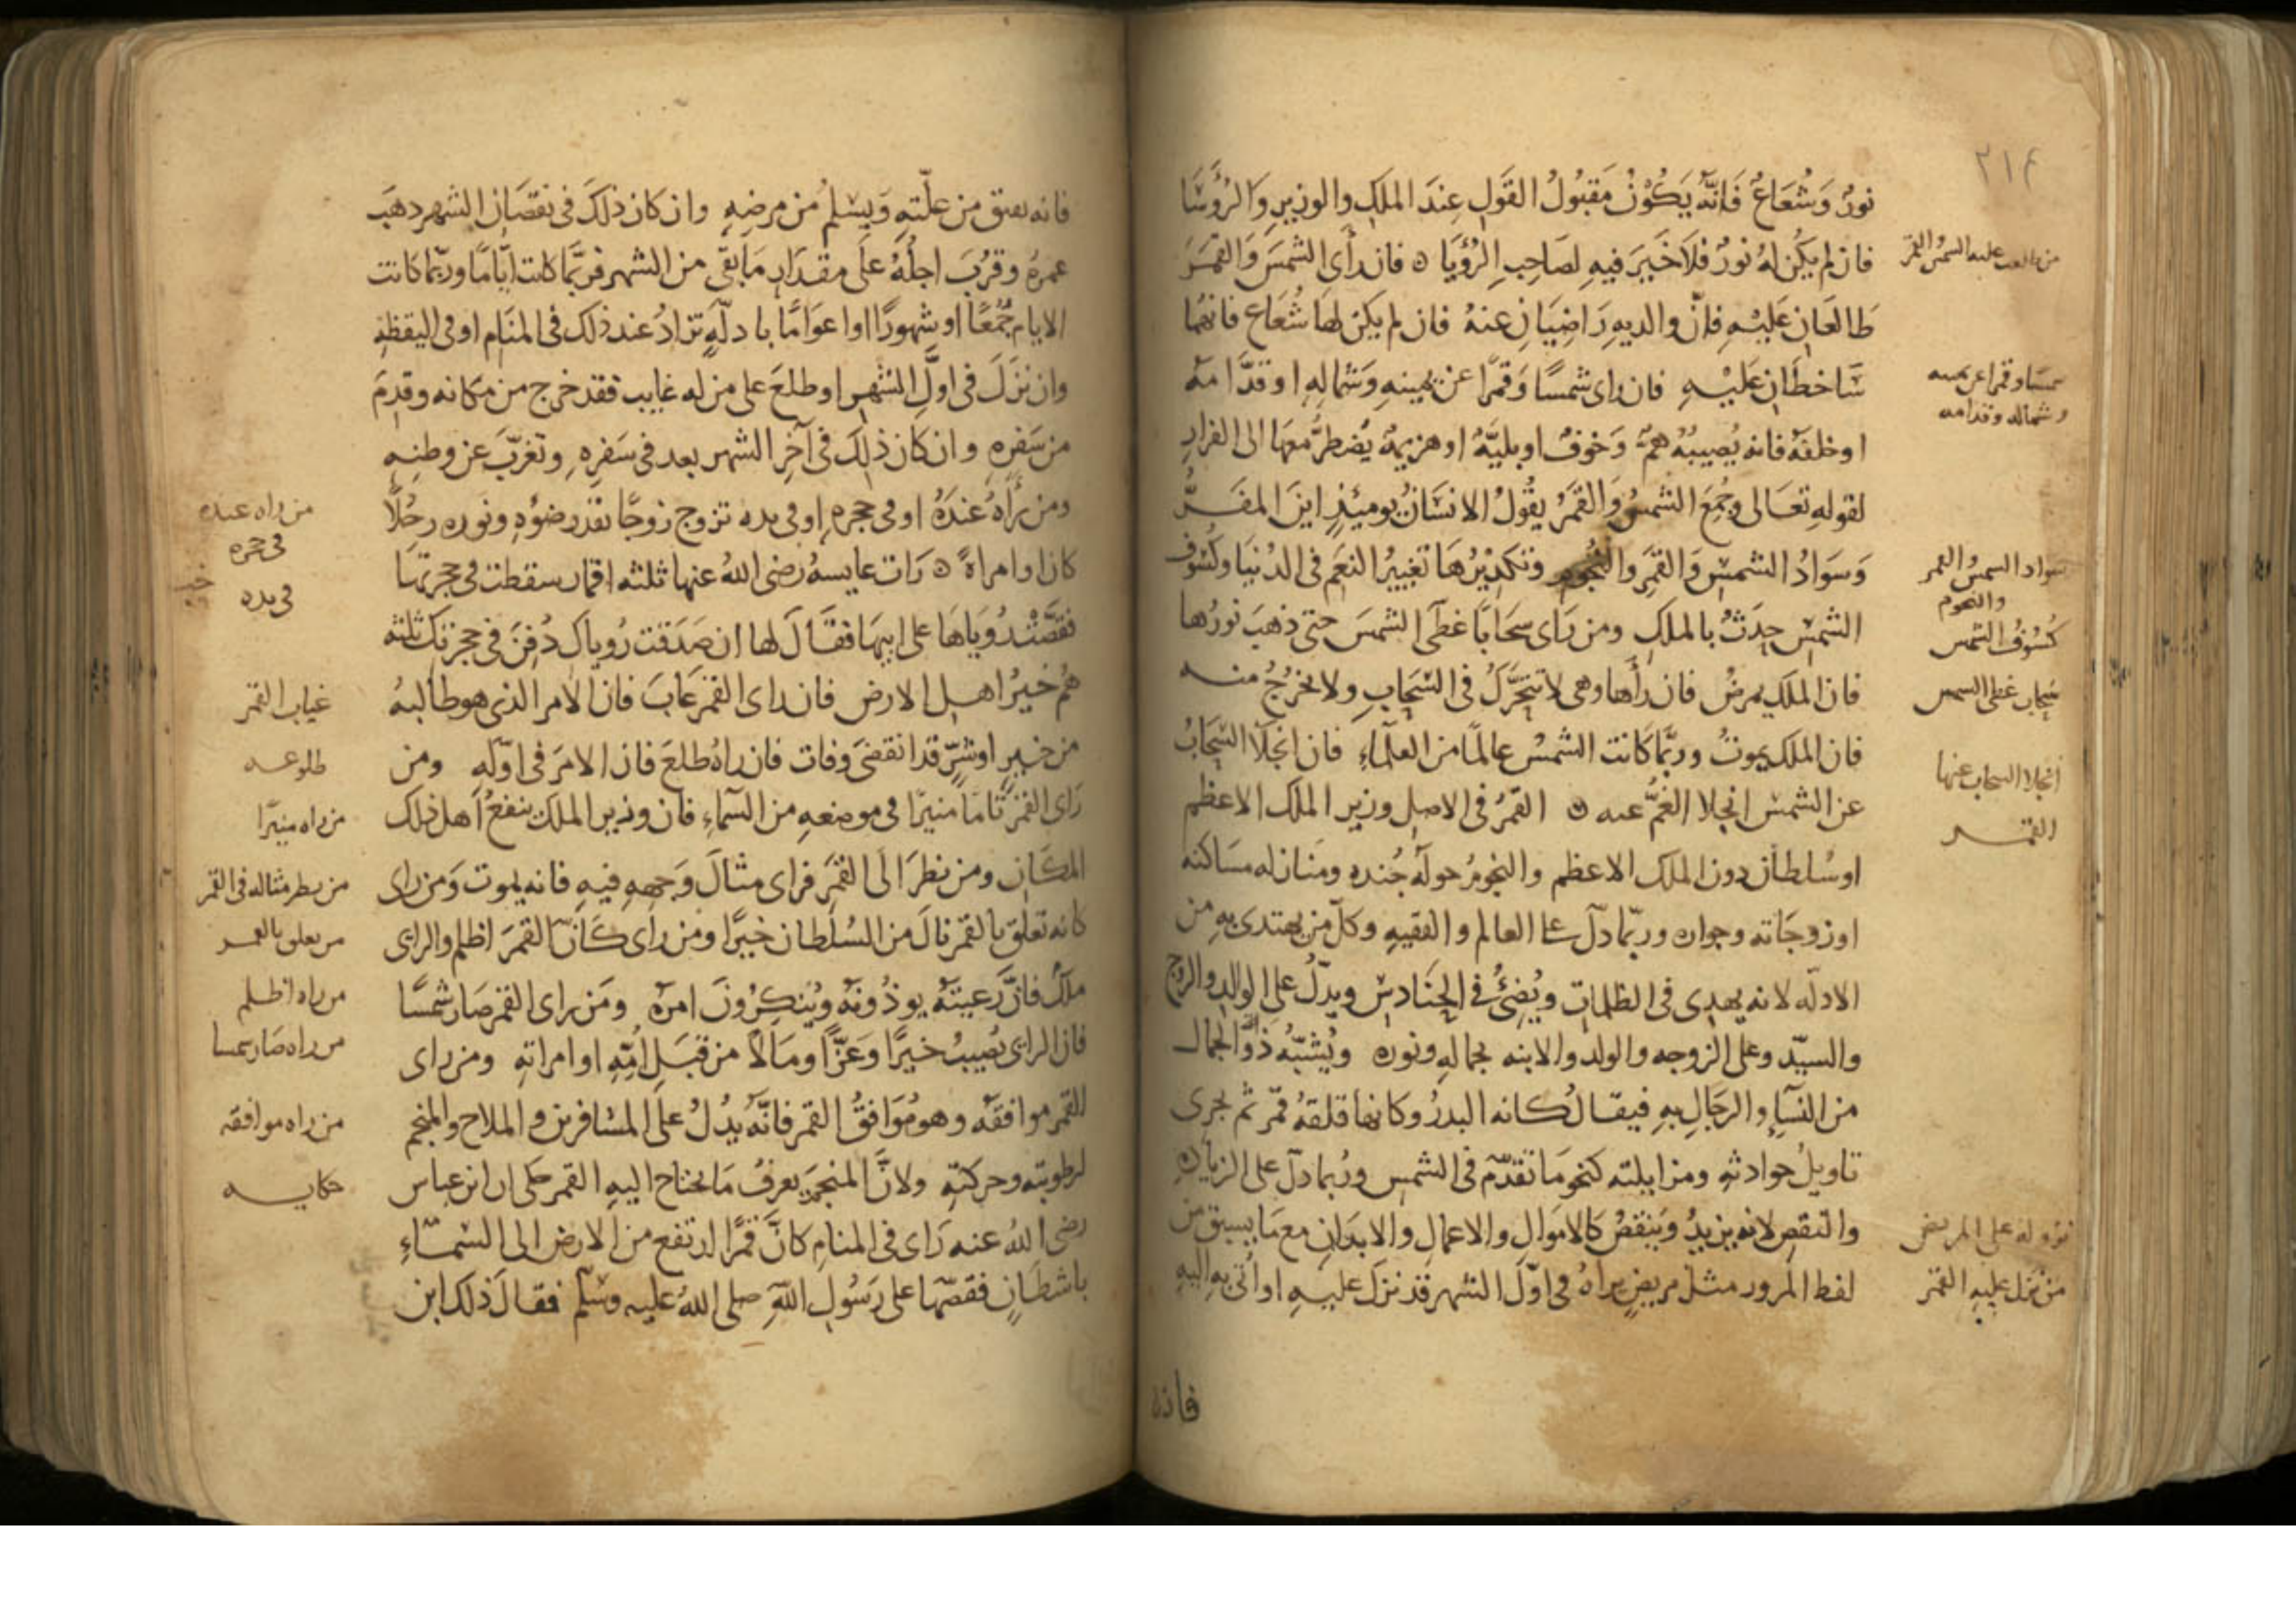 ٢١٤
نورٌ وَشُعَاعٌ فَانَّهُ يَكُوْنُ مَقبُولُ القَولِ عِندَ الملكِ والوزيرِ وَالرُؤَسَا
فان لم يكن لهُ نورٌ فلاَ خَيرَ فيهِ لصَاحِبِ الرُؤيَا ٥ فان رأى الشمَسَ وَالقمَرَ
طَالعَانِ عَليْهِ فانّ والديهِ رَاضِيَانِ عنهُ فان لم يكن لهَا شُعَاع فانهُما
سَّاخطَانِ عَليْهِ فان راى شمسًا وَقمرًا عن يمينهِ وَشمالهِ اوقدَّامهُ
اوخلفهُ فانه يُصيبُهُ همٌّ وَخوفٌ اوبليَّهٌ اوهزيمهٌ يَضطرَّ معهَا الى الفرارِ
لقولهِ تعَالى وَجُمِعَ الشمسُ وَالقمَرُ يقُولُ الانسَانُ يوميئذٍ اينَ المفَرُّ
وَسَوَادُ الشمسِ وَالقَمَرِ والنُجُومِ وتكديْرُهَا تغييرُ النعَم فى الدُنيَا وكسُوف
الشمسِ حِدَثٌ بالملكِ ومن رَاى سَحَابًا غطَّى الشمسَ حتى ذهَبَ نورُها
فان الملك يمرضُ فان رأها وهى لا تتحرَّكُ فى السَّحَابِ ولا تخرُجُ منه
فان الملك يموتُ وربَّما كانت الشمسُ عالمًا من العلمَاءِ فان انجلاَ السَّحَابُ
عن الشمسِ انجلا الغمُّ عنه ٥ القمَرُ فى الاصلِ وزير الملك الاعظم
اوسُلطان دون الملك الاعظم والنجومُ حولهُ جُنده ومَنازله مسَاكنه
اوزوجَاته وجواره وربَّما دلّ على العالم والفقيهِ وكلّ من يهتدى بهِ من
الادلّه لانه يهدى فى الظلمَاتِ ويُضِئُ فى الحِنَادسِ ويدلّ على الوالدِ والزوج
والسيّد وعلى الزوجه والولد والابنه بجمالهِ ونوره ويُشبّهُ ذَوُ الجمال
من النسَاءِ والرجَالِ بهِ فيقالُ كانه البدرُ وكانها فلقهُ قمَرٍ ثم يجرى
تاويلُ حوادثهِ ومزايلته كنحو مَا تقدّم فى الشمسِ ورُبما دلّ على الزيادهِ
والنقصِ لانه يزيدُ وَينقصُ كالاموَالِ والاعمالِ والابدَانِ مع مَا يسبق من
لفظ المرور مثل مريضٍ يراهُ فى اوّلِ الشهر قد نزل عليهِ او أتى بهِ اليهِ
فانه
من طلعت عليه الشمس والقمر
شمسا وقمرا عن يمينه
وشماله وقدامه
سواد الشمس والقمر
والنجوم
كُسُوفُ الشمس
سحاب غطى الشمس
انجلا السحاب عنها
القمَر
نزوله على المريض
من نزل عليه القمر
فانه يفيق من علّتهِ وَيسْلمُ من مرضهِ وان كان ذلكَ فى نقصَانِ الشهر ذهَبَ
عمرهُ وقرُبَ اجلُهُ علَى مقدَارِ مَا بقى من الشهرِ فربَّما كانت ايّامًا وربّما كانت
الايام جُمُعًا اوشهورًا اواعوَامًا بادلّهٍ تزادُ عند ذلك فى المنَامِ اوفى اليقظهِ
وان نزَلَ فى اولِّ الشهرِ اوطلعَ على من له غايب فقد خرج من مكانه وقدِمَ
من سَفرهِ وان كان ذلكَ فى آخرِ الشهر بعد فى سَفرهِ وتغرّبَ عن وطنهِ
ومن رَأهُ عندَهُ اوفى حجرهِ اوفى يده تزوج زوجًا بقدر ضوُهِ ونوره رجُلاً
كان اوامراةً ٥ رَات عايشهُ رضى اللهُ عنها ثلثه اقمار سقطت فى حجرتهَا
فقصَّتْ رُويَاهَا على ابيهَا فقَالَ لها ان صَدَقت رُوياكِ دُفِنَ فى حجرتكِ ثلثه
هُم خَيرُ اهل الارض فان راى القمَرَ غَابَ فان الامر الذى هو طالبهُ
من خيرٍ اوشرٍّ قد انقضى وَفات فان راهُ طلعَ فان الامرَ فى اوّلهِ ومن
رَاى القمَرَ تَامًا منيرًا فى موضعهِ من السمَآءِ فان وزير الملك ينفعُ اهل ذلك
المكَان ومن نظرَ الَى القمَرِ فراى مثالَ وَجههِ فيهِ فانه يموت وَمن راى
كانه تعلّق بالقمر نالَ من السُلطان خيرًا ومن راى كَانَّ القمَرَ اظلم والراى
ملكٌ فانَّ رَعيتهُ يوذُونهُ ويُنكِرُونَ امرَهُ ومَن راى القمَر صَار شمسًا
فان الراى يُصيبُ خيرًا وَعزًّا ومَالاً من قبَلِ اُمّهِ اوامراتهِ ومن راى
القمر موافقَهُ وهو مُوَافقُ القمر فانّهُ يدُلُ علَى المسَافرين والملاح والمنجم
لرطوبته وحركتهِ ولانَّ المنجمَ يعرفُ مَا يحتاج اليهِ القمر حكى ان ابن عباس
رضى اللهُ عنه رَاى فى المنامِ كانَّ قمَرًا ارتفع من الارض الى السَّمَاءِ
باشطَانٍ فقصّهَا على رَسُولِ اللهِ صلى اللهُ عليه وسَلّم فقالَ ذلك ابن
من راه عنده
فى حجره
فى يده
غياب القمر
طلوعه
من راه منيرًا
من ينظر مثاله فى القمر
من تعلق بالقمر
من راه اظلم
من راه صَار شمسا
من راه موافقه
حكايه